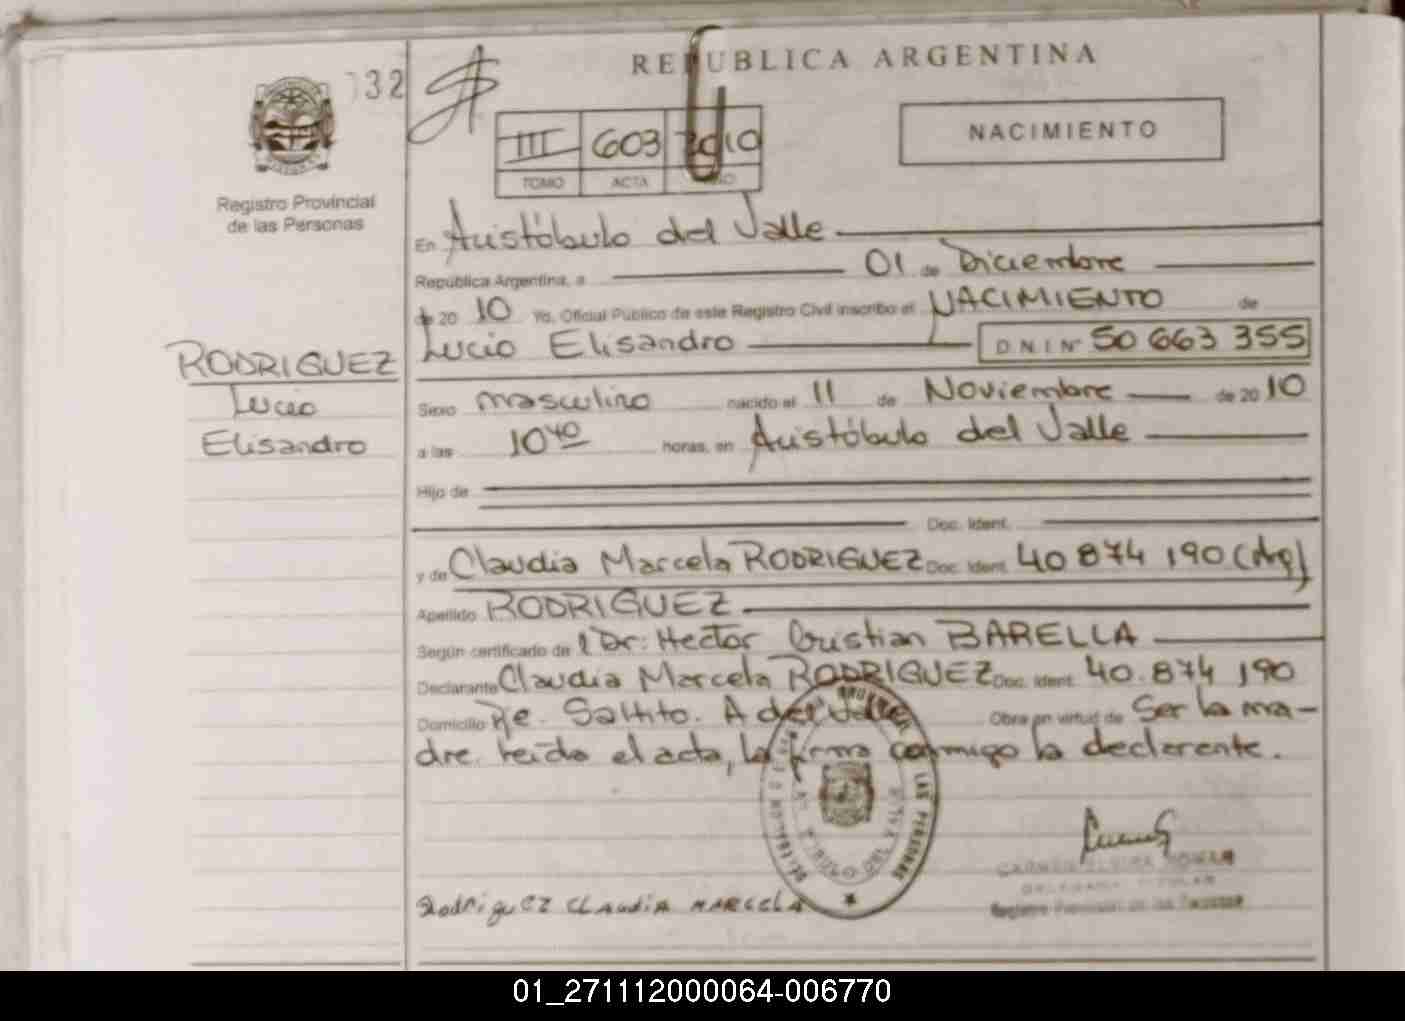 32
REPUBLICA ARGENTINA
III 603 2010
TOMO ACTA AÑO
NACIMIENTO
Registro Provincial
de las Personas
En Aristóbulo del Valle
República Argentina, a 01 de Diciembre
de 20 10 Yo, Oficial Público de este Registro Civil inscribo el NACIMIENTO de
Lucio Elisandro D N I Nº 50 663 355
RODRIGUEZ
Lucio
Elisandro
Sexo masculino nacido el 11 de Noviembre de 20 10
a las 10 40 horas, en Aristóbulo del Valle
Hijo de
Doc. Ident.
y de Claudia Marcela RODRIGUEZ Doc. Ident. 40 874 190 (Arg)
Apellido RODRIGUEZ
Según certificado de l Dr: Hector Cristian BARELLA
Declarante Claudia Marcela RODRIGUEZ Doc. Ident. 40.874 190
Domicilio Pje. Saltito. A del Valle Obra en virtud de Ser la ma-
dre. leída el acta, la firma conmigo la declarente.
LAS PERSONAS
Rodriguez Claudia Marcela
Registro Provincial de las Personas
01_271112000064-006770